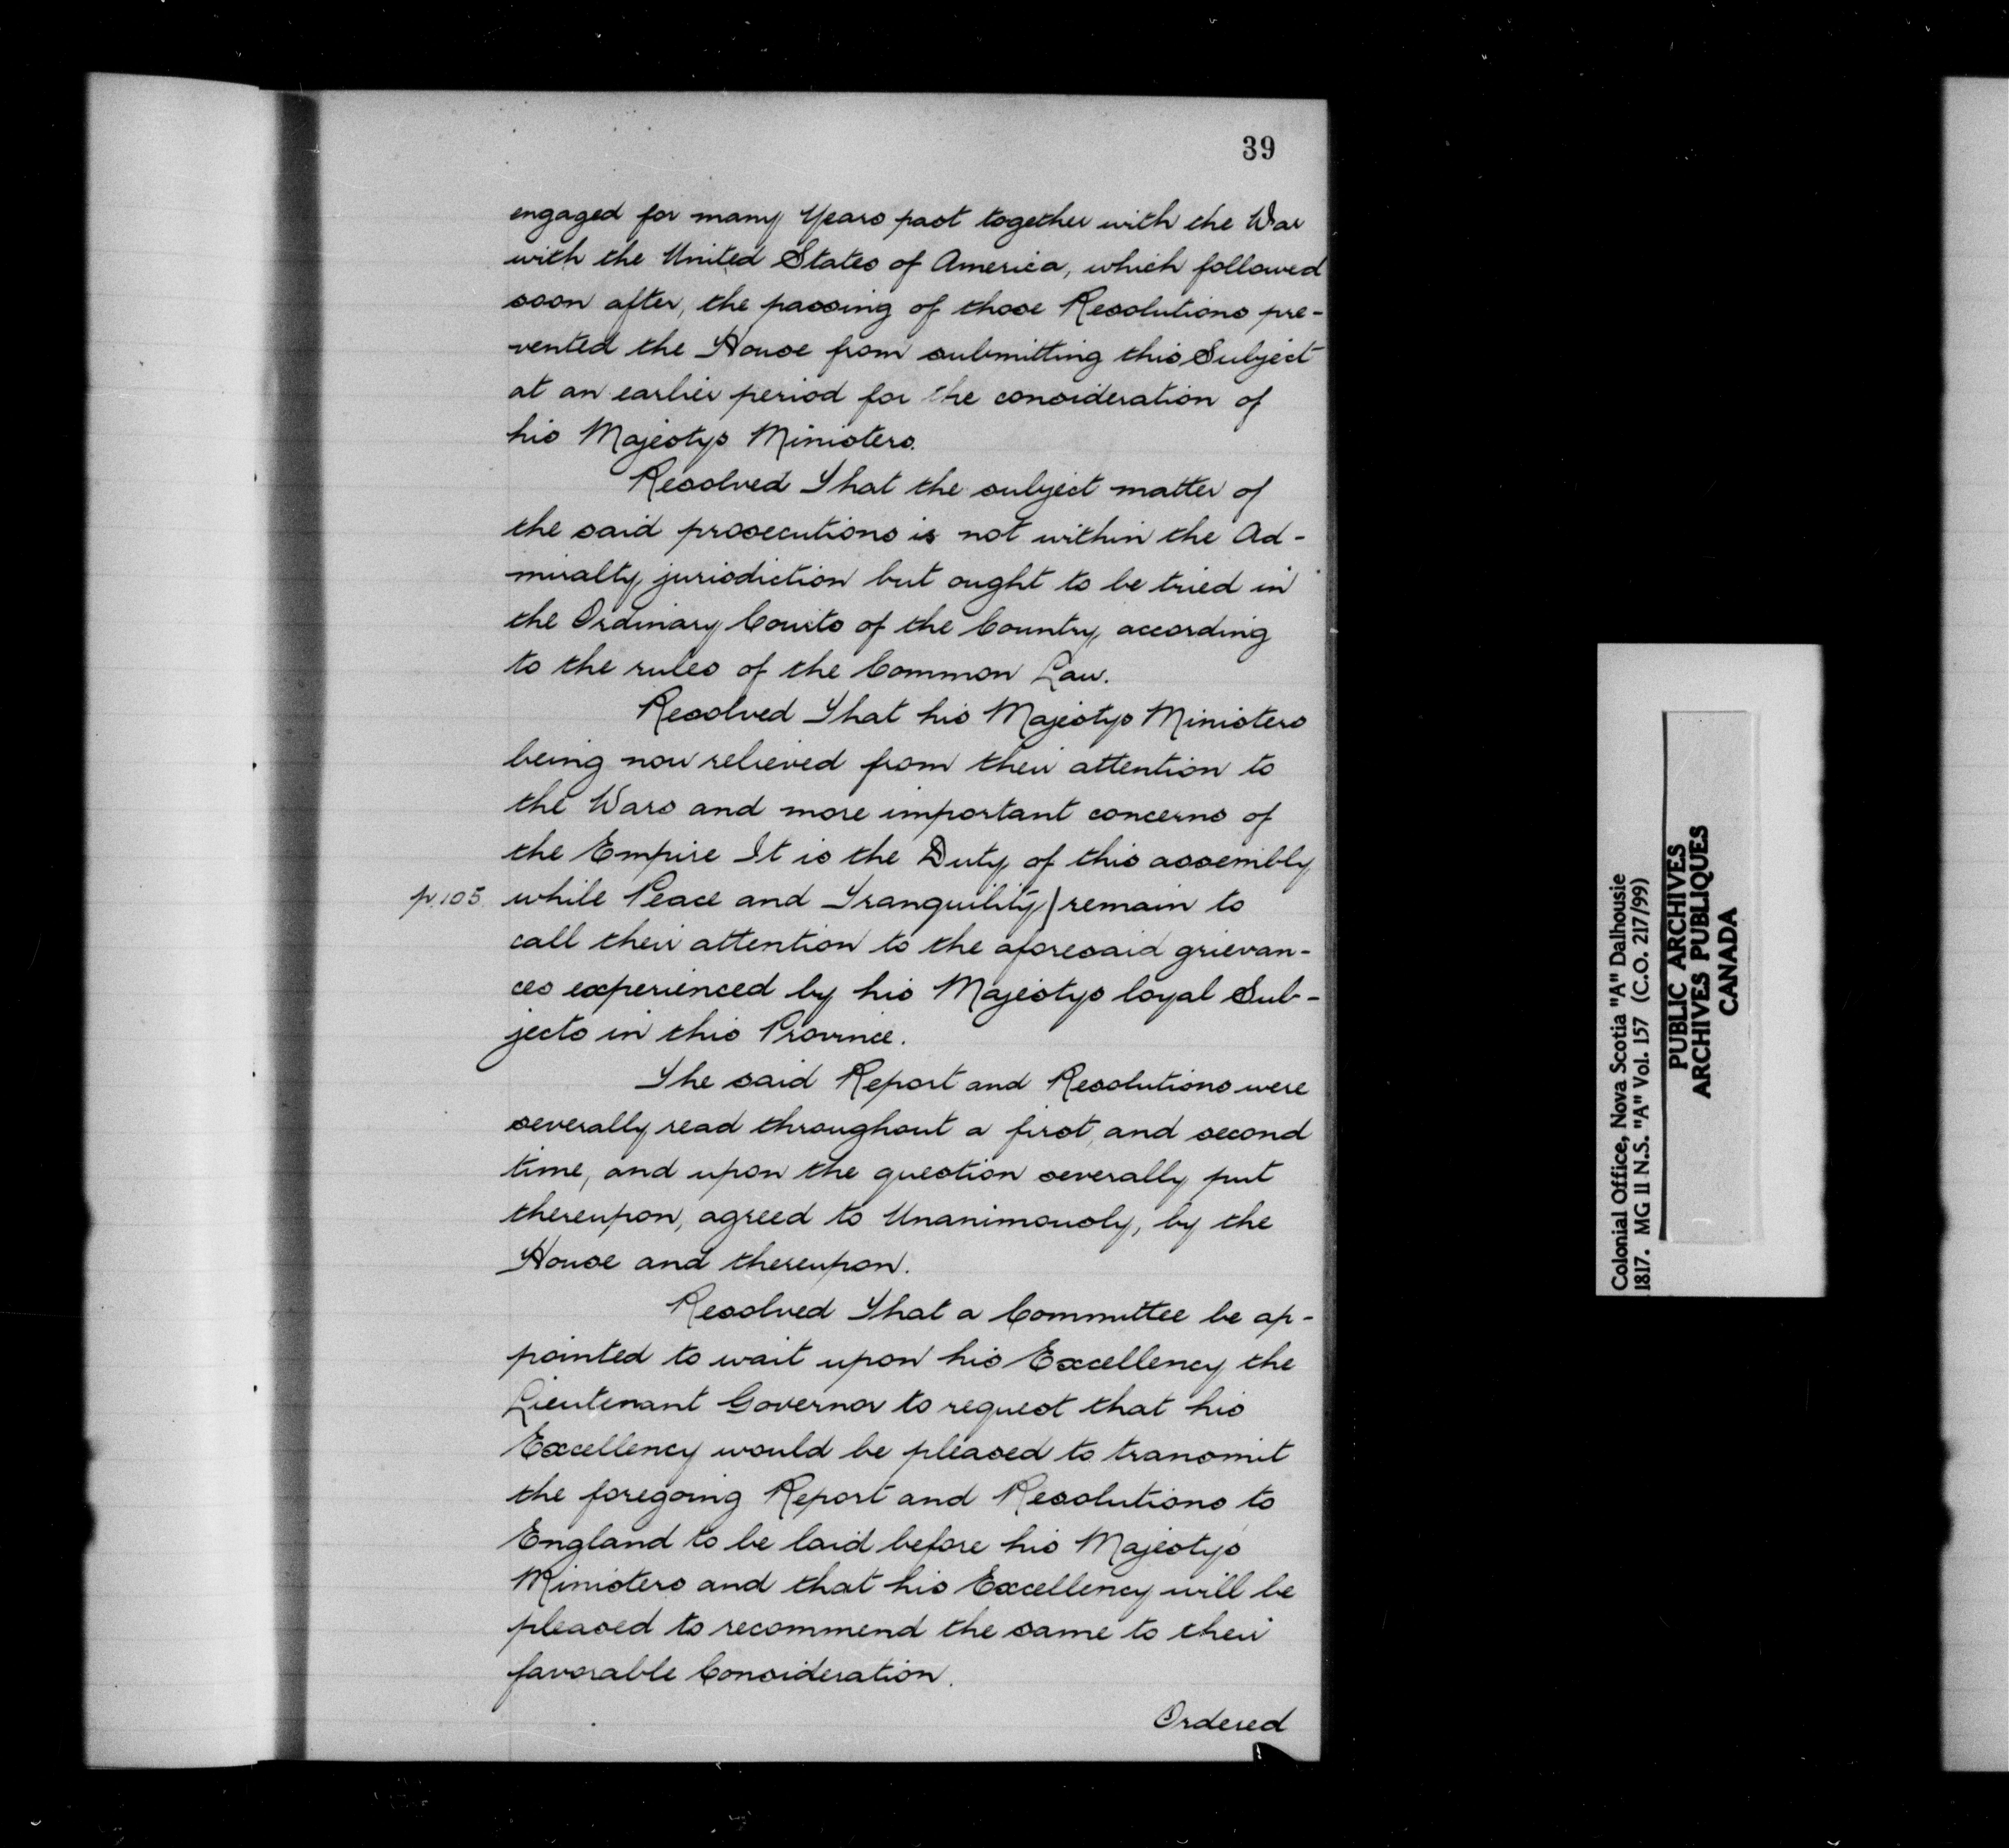 39
engaged for many Years past together with the War
with the United States of America, which followed
soon after, the passing of those Resolutions pre-
vented the House from submitting this Subject
at an earlier period for the consideration of
his Majestys Ministers.
Resolved That the subject matter of
the said prosecutions is not within the Ad-
miralty jurisdiction but ought to be tried in
the Ordinary Courts of the Country, according
to the rules of the Common Law.
Resolved That his Majestys Ministers
being now relieved from their attention to
the Wars and more important concerns of
the Empire It is the Duty of this assembly
p.105 while Peace and Tranquility) remain to
call their attention to the aforesaid grievan-
ces experienced by his Majestys loyal Sub-
jects in this Province.
The said Report and Resolutions were
severally read throughout a first, and second
time, and upon the question severally put
thereupon, agreed to Unanimously, by the
House and thereupon.
Resolved That a Committee be ap-
pointed to wait upon his Excellency the
Lieutenant Governor to request that his
Excellency would be pleased to transmit
the foregoing Report and Resolutions to
England to be laid before his Majestys
Ministers and that his Excellency will be
pleased to recommend the same to their
favorable Consideration.
Ordered
Colonial Office, Nova Scotia "A" Dalhousie
1817. MG 11 N.S. "A" Vol. 157 (C.O. 217/99)
PUBLIC ARCHIVES
ARCHIVES PUBLIQUES
CANADA